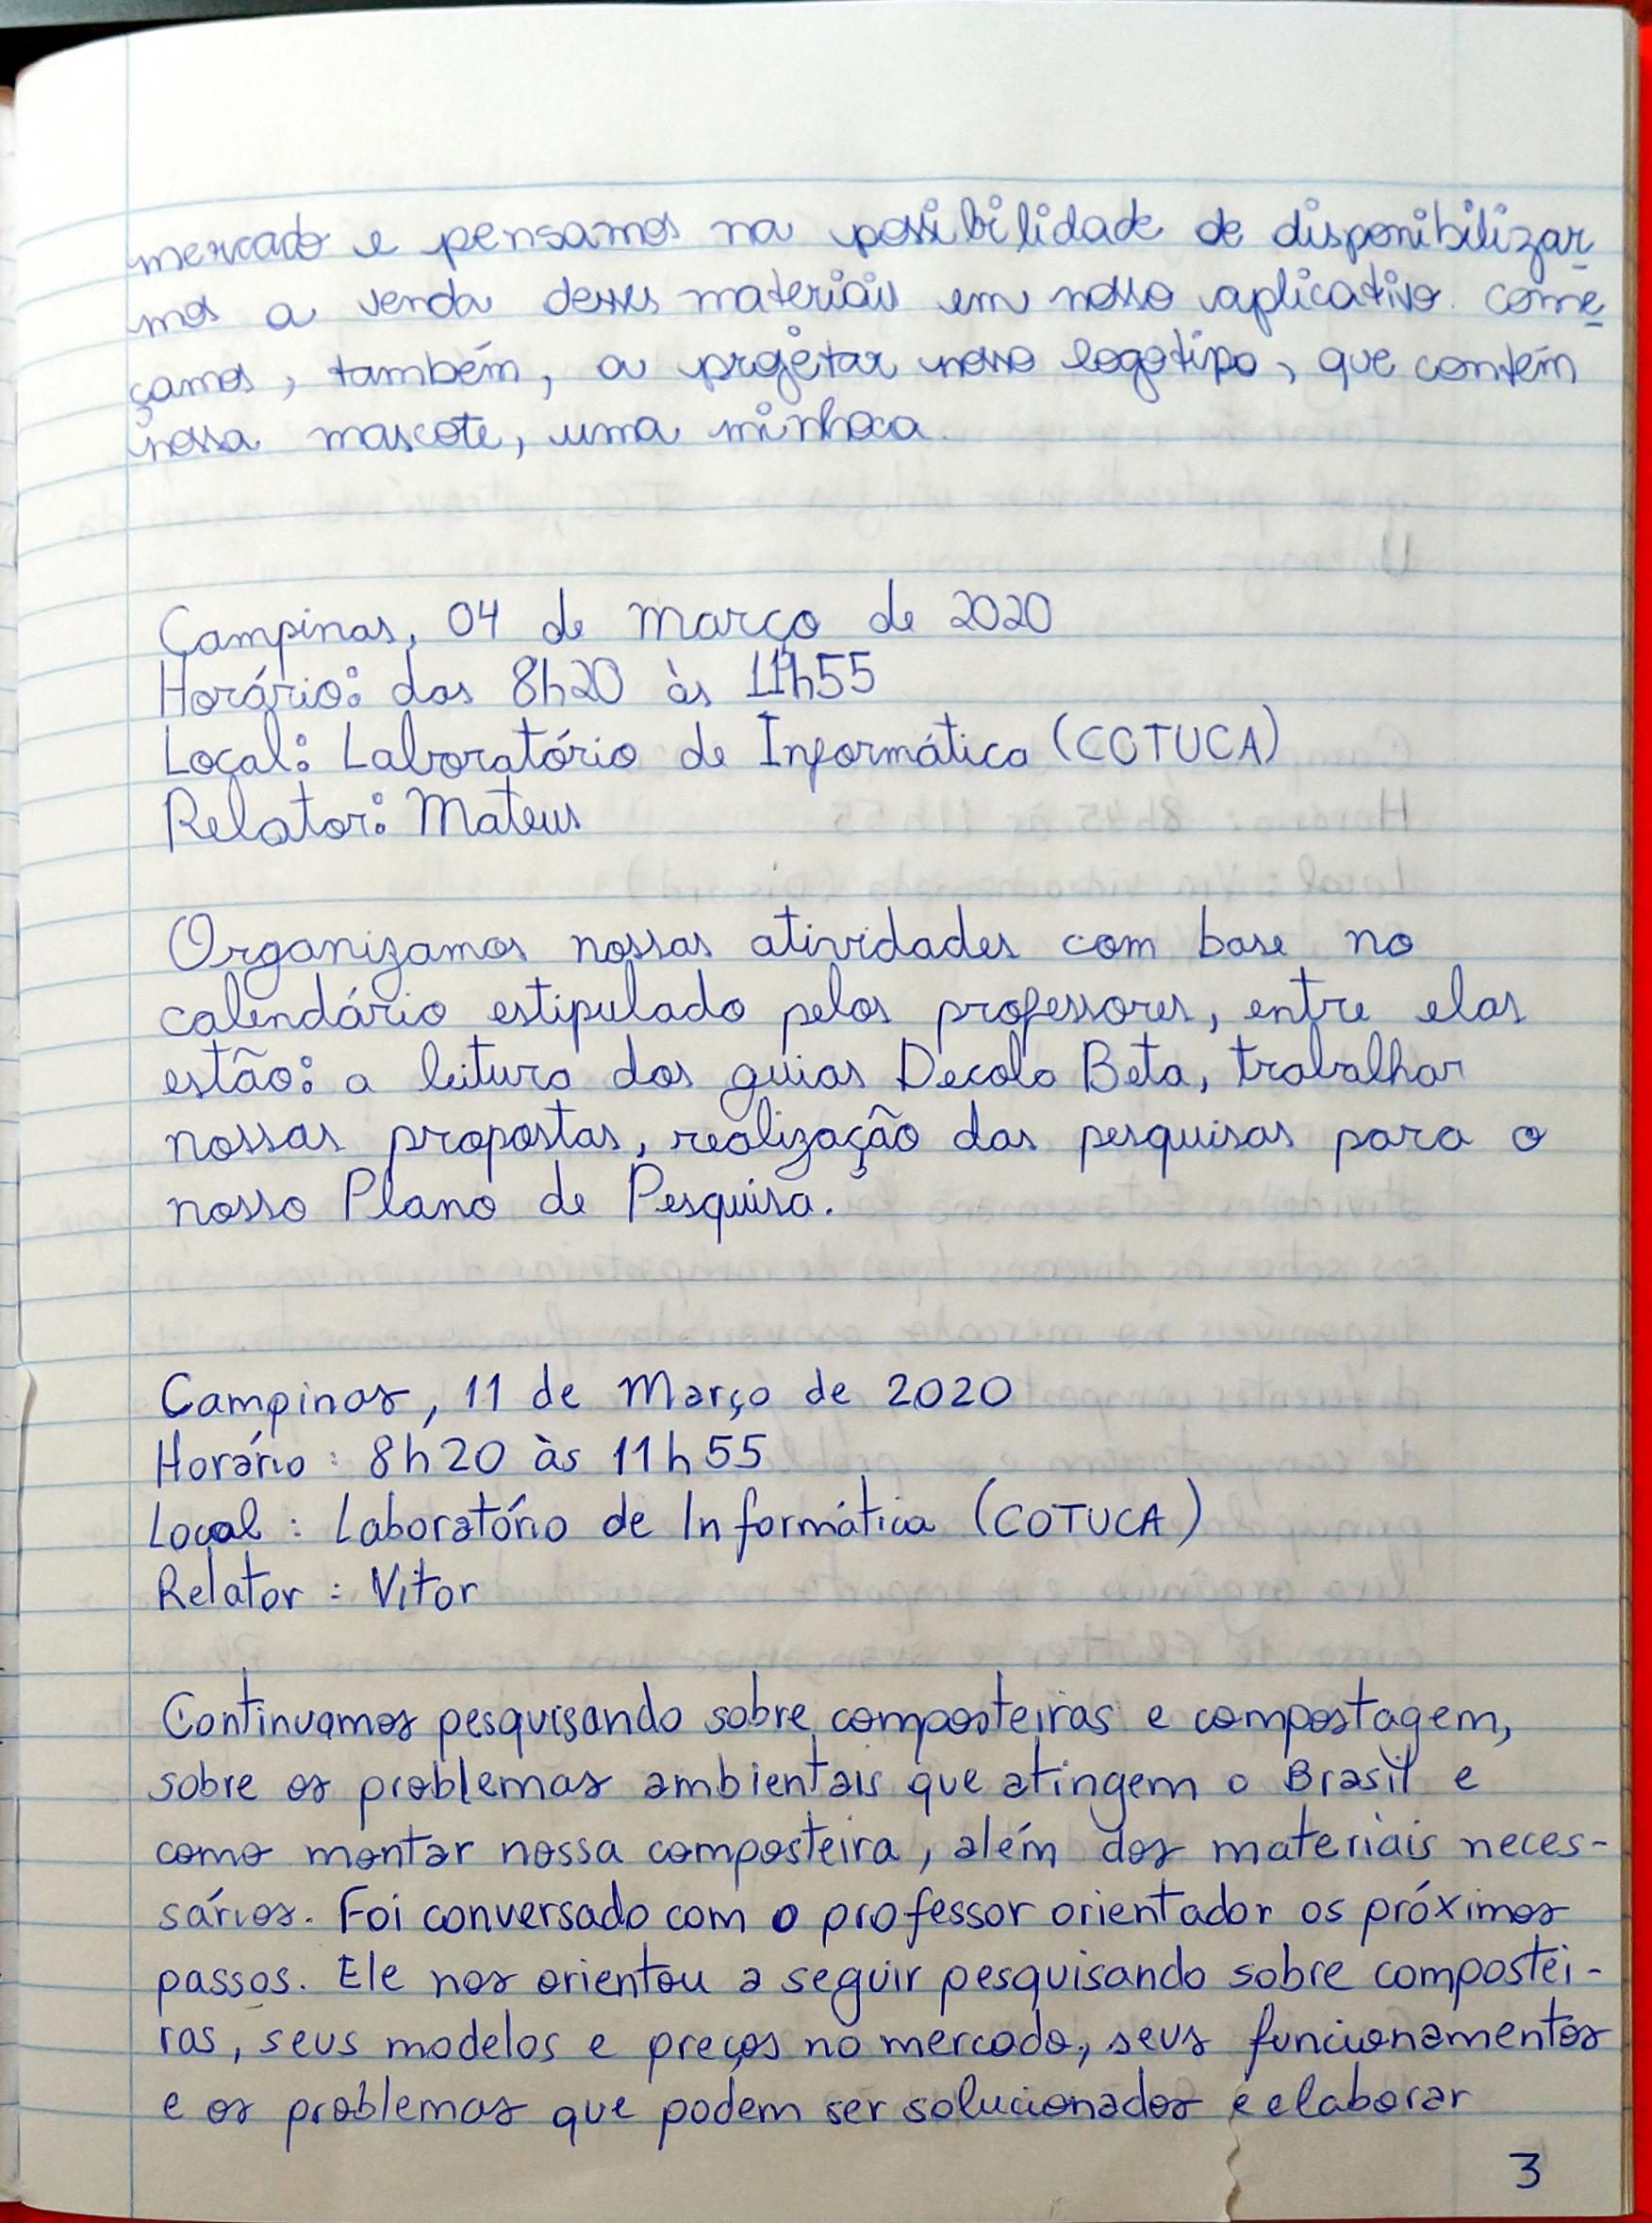 mercado e pensamos na possibilidade de disponibilizar
mos a venda desses materiais em nosso aplicativo. Come
çamos, também, a projetar nosso logotipo, que contém
nossa mascote, uma minhoca.
Campinas, 04 de março de 2020
Horário: das 8h20 às 11h55
Local: Laboratório de Informática (COTUCA)
Relator: Mateus
Organizamos nossas atividades com base no
calendário estipulado pelos professores, entre elas
estão: a leitura dos guias Decola Beta, trabalhar
nossas propostas, realização das pesquisas para o
nosso Plano de Pesquisa.
Campinas, 11 de Março de 2020
Horário: 8h20 às 11h55
Local: Laboratório de Informática (COTUCA)
Relator: Vitor
Continuamos pesquisando sobre composteiras e compostagem,
sobre os problemas ambientais que atingem o Brasil e
como montar nossa composteira, além dos materiais neces-
sários. Foi conversado com o professor orientador os próximos
passos. Ele nos orientou a seguir pesquisando sobre compostei-
ras, seus modelos e preços no mercado, seus funcionamentos
e os problemas que podem ser solucionados e elaborar
3